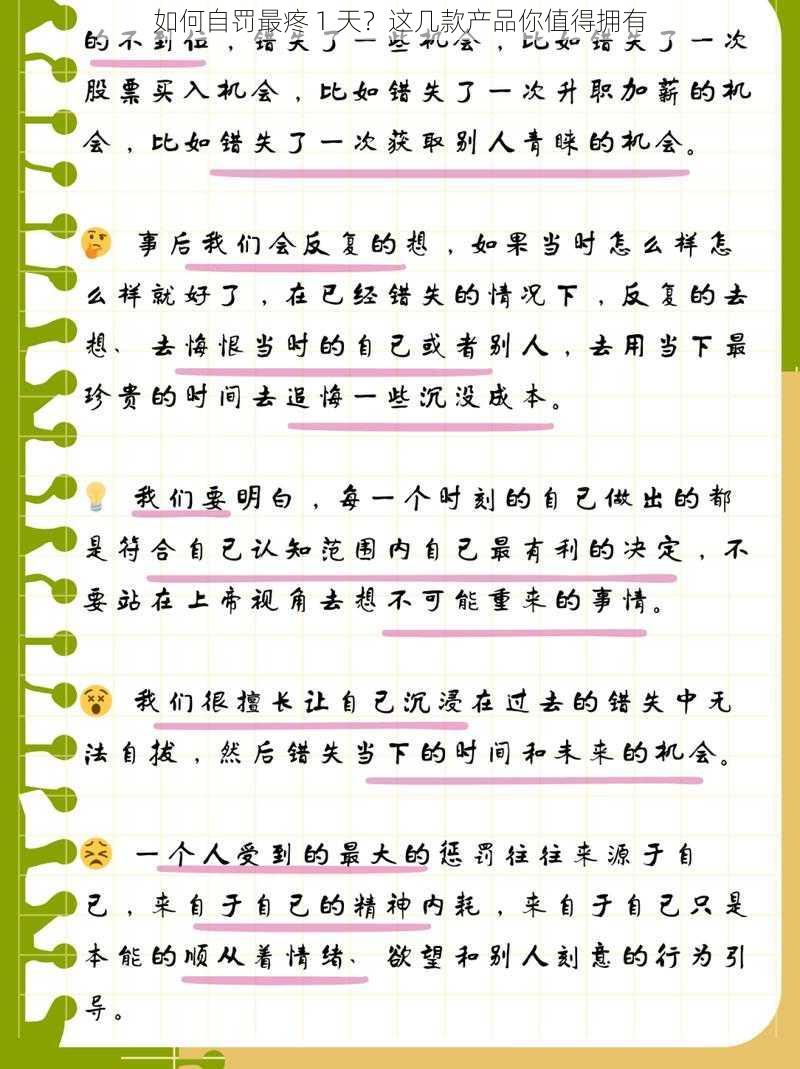 如何自罚最疼 1 天？这几款产品你值得拥有
的不到位，错失了一些机会，比如错失了一次
股票买入机会，比如错失了一次升职加薪的机
会，比如错失了一次获取别人青睐的机会。
🤔 事后我们会反复的想，如果当时怎么样怎
么样就好了，在已经错失的情况下，反复的去
想、去悔恨当时的自己或者别人，去用当下最
珍贵的时间去追悔一些沉没成本。
💡 我们要明白，每一个时刻的自己做出的都
是符合自己认知范围内自己最有利的决定，不
要站在上帝视角去想不可能重来的事情。
😵 我们很擅长让自己沉浸在过去的错失中无
法自拔，然后错失当下的时间和未来的机会。
😣 一个人受到的最大的惩罚往往来源于自
己，来自于自己的精神内耗，来自于自己只是
本能的顺从着情绪、欲望和别人刻意的行为引
导。